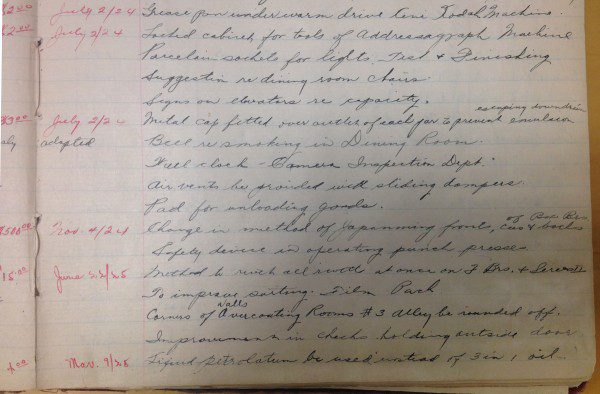 $2.00 July 2/24 Grease pan under worm drive Cine Kodak Machine.
$2.00 July 2/24 Locked cabinet for tools of Addressograph Machine
Porcelain sockets for lights. Test & Finishing
Suggestion re dining room chairs.
Signs on elevators re capacity.
escaping down drain
$3.00 July 2/24 Metal cap fitted over outlet of each jar to prevent emulsion
adopted Bell re smoking in Dining Room.
clock - Camera Inspection Dept.
Air vents be provided with sliding dampers.
Pad for unloading goods.
of Box Bros.
$500.00 Nov. 4/24 Change in method of Japanning fronts, & backs
Safety device in operating punch presses
$15.00 June 23/25 Method to rivet all rivets at once on F Bros. &
To improve sorting. Film Pack
walls
Corners of Overcoating Rooms #3 Alley be rounded off.
Improvement in checks holding outside door.
Nov. 9/25 Liquid petrolatum be used instead of 3 in 1 oil.